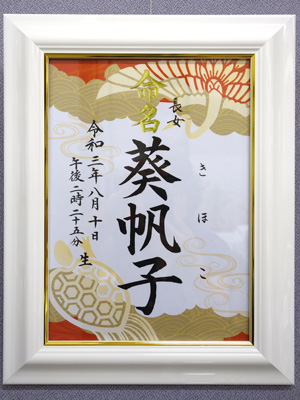 命名
長女
きほこ
葵帆子
令和三年八月十日
午後二時二十五分
生